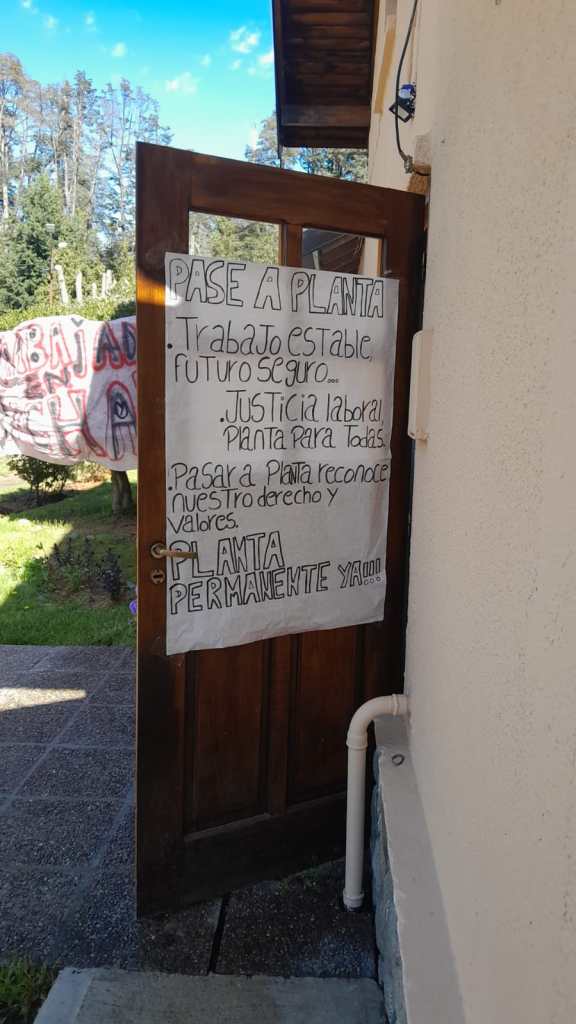 PASE A PLANTA
.Trabajo estable,
futuro seguro...
.Justicia laboral,
Planta para Todas.
.Pasar a Planta reconoce
nuestro derecho y
valores.
PLANTA
PERMANENTE YA!!!
EN